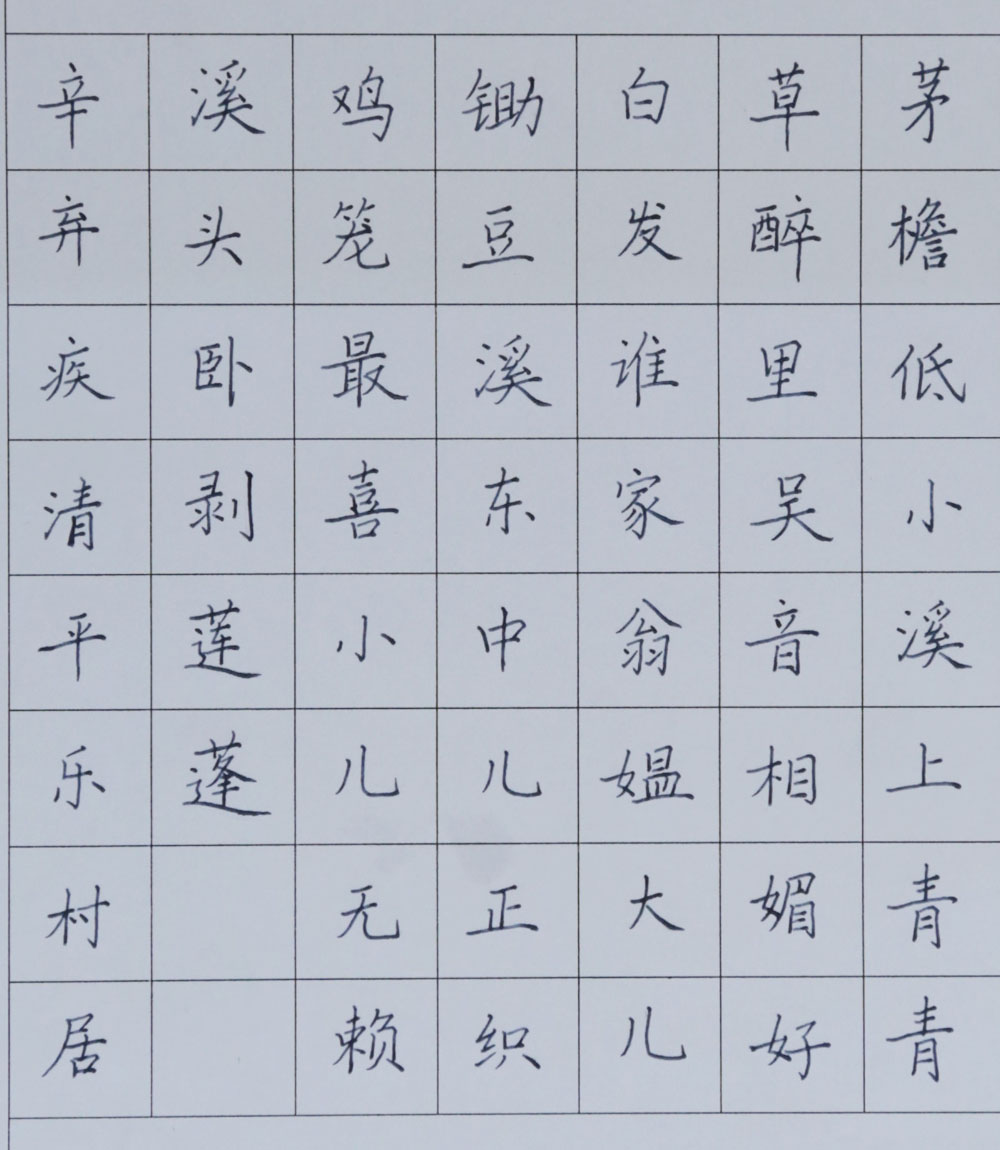 茅檐低小溪上青青
草醉里吴音相媚好
白发谁家翁媪大儿
锄豆溪东中儿正织
鸡笼最喜小儿无赖
溪头卧剥莲蓬
辛弃疾清平乐村居